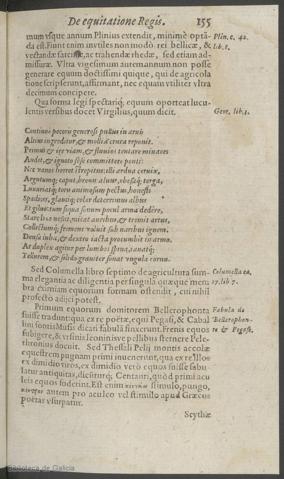 De equitatione Regis. 155
mum vsque annum Plinius extendit, minimè optã- Plin. c. 42.
da est. Fiunt enim inutiles non modò rei bellicæ, & lib. 8.
vectandæ sarcinæ, ac trahendæ rhedæ, sed etiam ad-
missuræ. Vltra vigesimum autem annum non posse
generare equum doctissimi quique, qui de agricola
tione scripserunt, affirmant, nec equam vtiliter vltra
decimum concipere.
Qua forma legi spectariq́; equum oporteat lucu-
lentis versibus docet Virgilius, quum dicit. Geor. lib. 3.
Continuò pecoris generosi pullus in aruis
Altius ingreditur, & mollia crura reponit.
Primus & ire viam, & fluuios tentare minaces
Audet, & ignoto sese committere ponti:
Nec vanos horret strepitus: illi ardua ceruix,
Argutumq; caput, breuis aluus, obesaq; terga,
Luxuriatq; toris animosum pectus, honesti
Spadices, glauciq; color deterrimus albus
Et giluus: tum si qua sonum procul arma dedêre,
Stare loco nescit, micat auribus, & tremit artus,
Collectumq́; fremens voluit sub naribus ignem.
Densa iuba, & dextro iacta procumbit in armo.
At duplex agitur per lumbos spina, cauatq́;
Tellurem, & solido grauiter sonat vngula cornu.
Sed Columella libro septimo de agricultura sum- Columella ca.
ma elegantia ac diligentia per singula quæque mem 27. lib. 7.
bra eximiam equorum formam ostendit, cui nihil
profectò adijci potest.
Primum equorum domitorem Bellerophonta Fabula de
fuisse tradunt: qua ex re poëtæ, equi Pegasi, & Cabal Bellerophon-
lini fontis Musis dicati fabulã finxerunt. Frenis equos te & Pegaso.
subigere, & vrsinis leoninis ve pellibus sternere Pele-
thronius docuit. Sed Thessali Pelij montis accolæ
equestrem pugnam primi inuenerunt, qua ex re illos
ex dimidio viros, ex dimidio verò equos fuisse fabu-
latur antiquitas, dicti[que] Centauri, quòd primi acu
leis equos foderint. Est enim stimulo, pungo,
autem pro aculeo vel stimulo apud Græcos
poëtas vsurpatur.
Scythæ
Biblioteca de Galicia